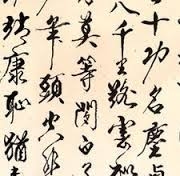 十功名塵與
八千里路雲和
莫等閒白了
年頭空悲
靖康恥猶